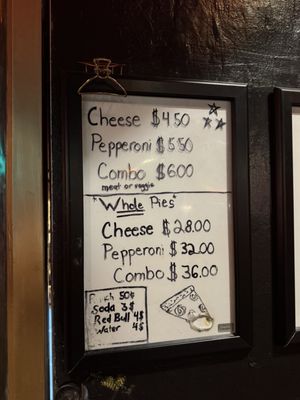 Cheese $4.50
Pepperoni $5.50
Combo $6.00
meat or veggie
"Whole Pies"
Cheese $28.00
Pepperoni $32.00
Combo $36.00
50¢
Soda 3$
Red Bull 4$
Water 4$